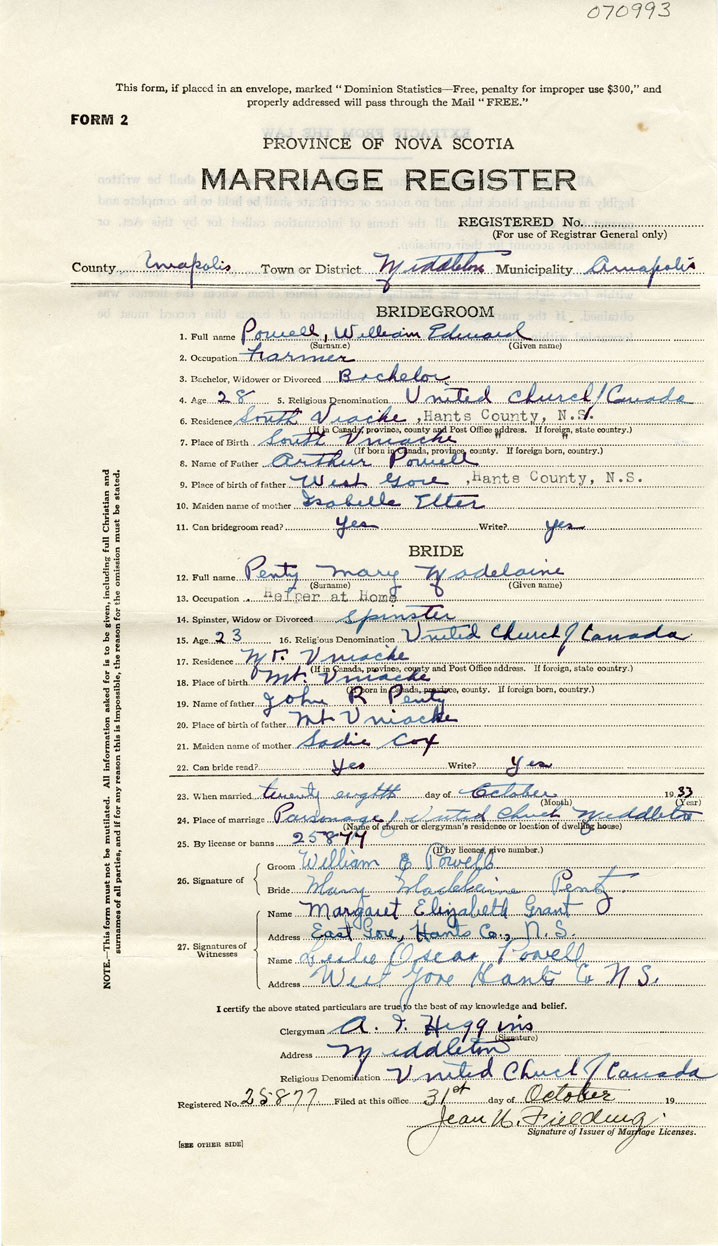 070993
This form, if placed in an envelope, marked "Dominion Statistics—Free, penalty for improper use $300," and
properly addressed will pass through the Mail "FREE."
FORM 2
PROVINCE OF NOVA SCOTIA
MARRIAGE REGISTER
REGISTERED No.
(For use of Registrar General only)
County Annapolis Town or District Middleton Municipality Annapolis
BRIDEGROOM
1. Full name Powell, William Edward
(Surname) (Given name)
2. Occupation Farmer
3. Bachelor, Widower or Divorced Bachelor
4. Age 28 5. Religious Denomination United Church/Canada
6. Residence South Uniacke, Hants County, N.S.
(If in Canada, province, county and Post Office address. If foreign, state country.)
7. Place of Birth South Uniacke " "
(If born in Canada, province, county. If foreign born, country.)
8. Name of Father Arthur Powell
9. Place of birth of father West Gore, Hants County, N.S.
10. Maiden name of mother Isabelle Etter
11. Can bridegroom read? Yes Write? yes
BRIDE
12. Full name Penty Mary Madelaine
(Surname) (Given name)
13. Occupation Helper at Home
14. Spinster, Widow or Divorced Spinster
15. Age 23 16. Religious Denomination United Church/Canada
17. Residence Mt. Uniacke
(If in Canada, province, county and Post Office address. If foreign, state country.)
18. Place of birth Mt. Uniacke
(If born in Canada, province, county. If foreign born, country.)
19. Name of father John R Penty
20. Place of birth of father Mt Uniacke
21. Maiden name of mother Sadie Cox
22. Can bride read? Yes Write? Yes
23. When married twenty eighth day of October 1933
(Month) (Year)
24. Place of marriage Parsonage/United Church Middleton
(Name of church or clergyman's residence or location of dwelling house)
25. By license or banns 25877
(If by licence, give number.)
26. Signature of
Groom William E Powell
Bride Mary Madeleine Penty
27. Signatures of Witnesses
Name Margaret Elizabeth Grant
Address East Gore, Hants Co., N.S.
Name Leslie Oscar Powell
Address West Gore Hants Co N.S.
I certify the above stated particulars are true to the best of my knowledge and belief.
Clergyman A. I. Higgins
(Signature)
Address Middleton
Religious Denomination United Chuch/Canada
Registered No. 25877 Filed at this office 31st day of October 19
Jean U. Fielding.
Signature of Issuer of Marriage Licenses.
[SEE OTHER SIDE]
NOTE.—This form must not be mutilated. All information asked for is to be given, including full Christian and
surnames of all parties, and if for any reason this is impossible, the reason for the omission must be stated.